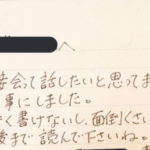 へ
接会って話したいと思ってま
事にしました。
く書けないし、面倒くさい
後まで読んで下さいね。